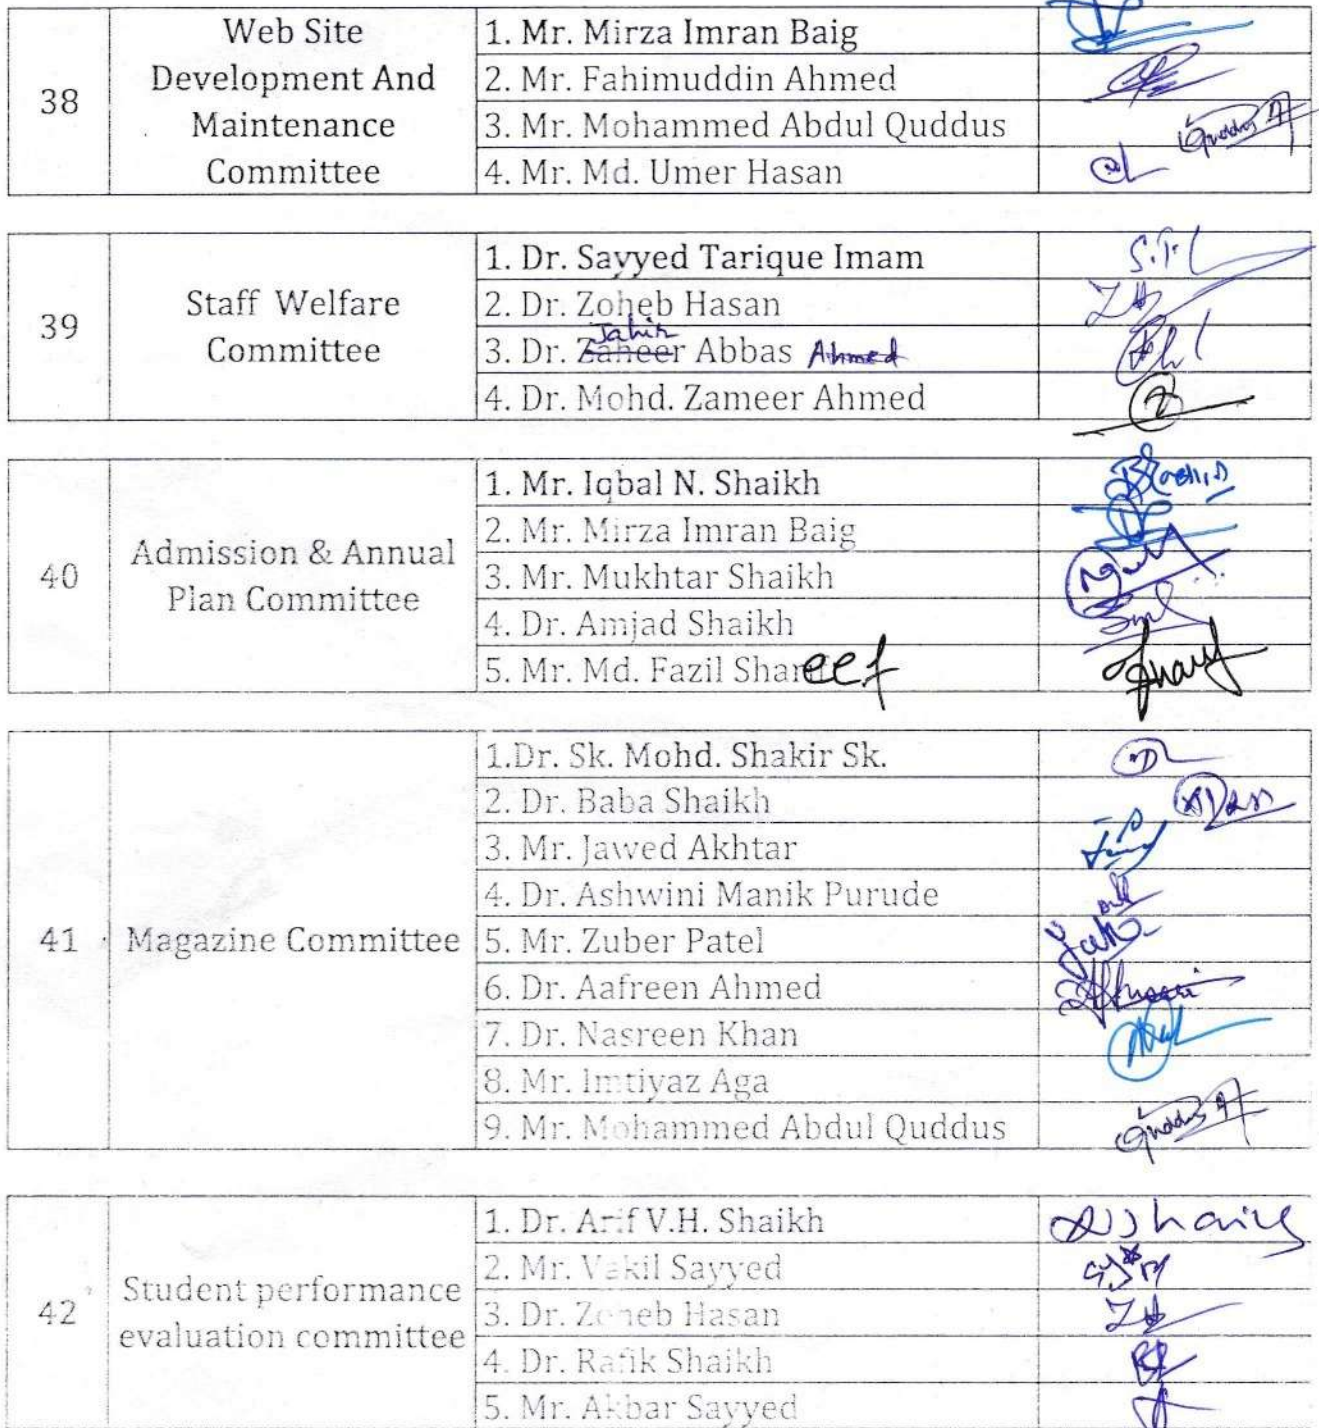 38
Web Site
Development And
Maintenance
Committee
1. Mr. Mirza Imran Baig
2. Mr. Fahimuddin Ahmed
3. Mr. Mohammed Abdul Quddus
Quddus
4. Mr. Md. Umer Hasan
39
Staff Welfare
Committee
1. Dr. Sayyed Tarique Imam
2. Dr. Zoheb Hasan
Jahir
3. Dr. Zaheer Abbas Ahmed
4. Dr. Mohd. Zameer Ahmed
40
Admission & Annual
Plan Committee
1. Mr. Iqbal N. Shaikh
2. Mr. Mirza Imran Baig
3. Mr. Mukhtar Shaikh
4. Dr. Amjad Shaikh
5. Mr. Md. Fazil Shareef
41
Magazine Committee
1.Dr. Sk. Mohd. Shakir Sk.
2. Dr. Baba Shaikh
3. Mr. Jawed Akhtar
4. Dr. Ashwini Manik Purude
5. Mr. Zuber Patel
6. Dr. Aafreen Ahmed
7. Dr. Nasreen Khan
8. Mr. Imtiyaz Aga
9. Mr. Mohammed Abdul Quddus
Quddus
42
Student performance
evaluation committee
1. Dr. Arif V.H. Shaikh
2. Mr. Vakil Sayyed
3. Dr. Zoheb Hasan
4. Dr. Rafik Shaikh
5. Mr. Akbar Sayyed